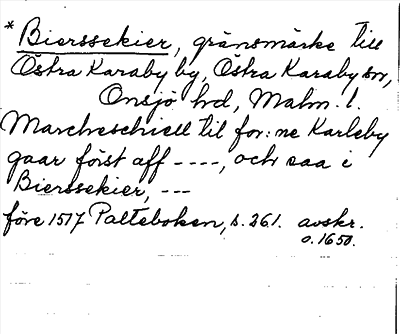 * Bierssekier, gränsmärke till
Östra Karaby by, Östra Karaby sn,
Onsjö hd, Malm. l.
Marcheschiell til for:ne Karleby
gaar först aff ----, och saa i
Bierssekier, ---
före 1517 Palteboken, s. 261. avskr.
o. 1650.